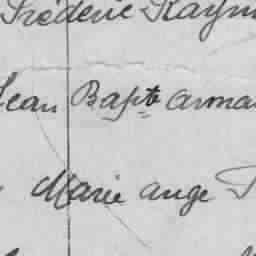 Frédéric Raym
Jean Bapte Arma
Marie Ange